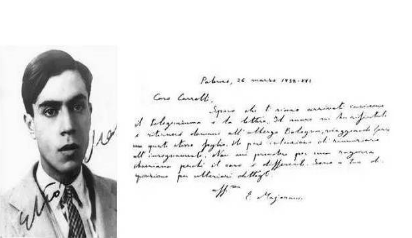 Palermo, 26 marzo 1938-XVI
Caro Carrelli,
Spero che ti siano arrivati insieme
il telegramma e la lettera. Il mare mi ha rifiutato
e ritornerò domani all'albergo Bologna, viaggiando forse
con questo stesso foglio. Ho però intenzione di rinunciare
all'insegnamento. Non mi prendere per una ragazza
ibseniana perché il caso è differente. Sono a tua di-
sposizione per ulteriori dettagli
aff.mo
E. Majorana